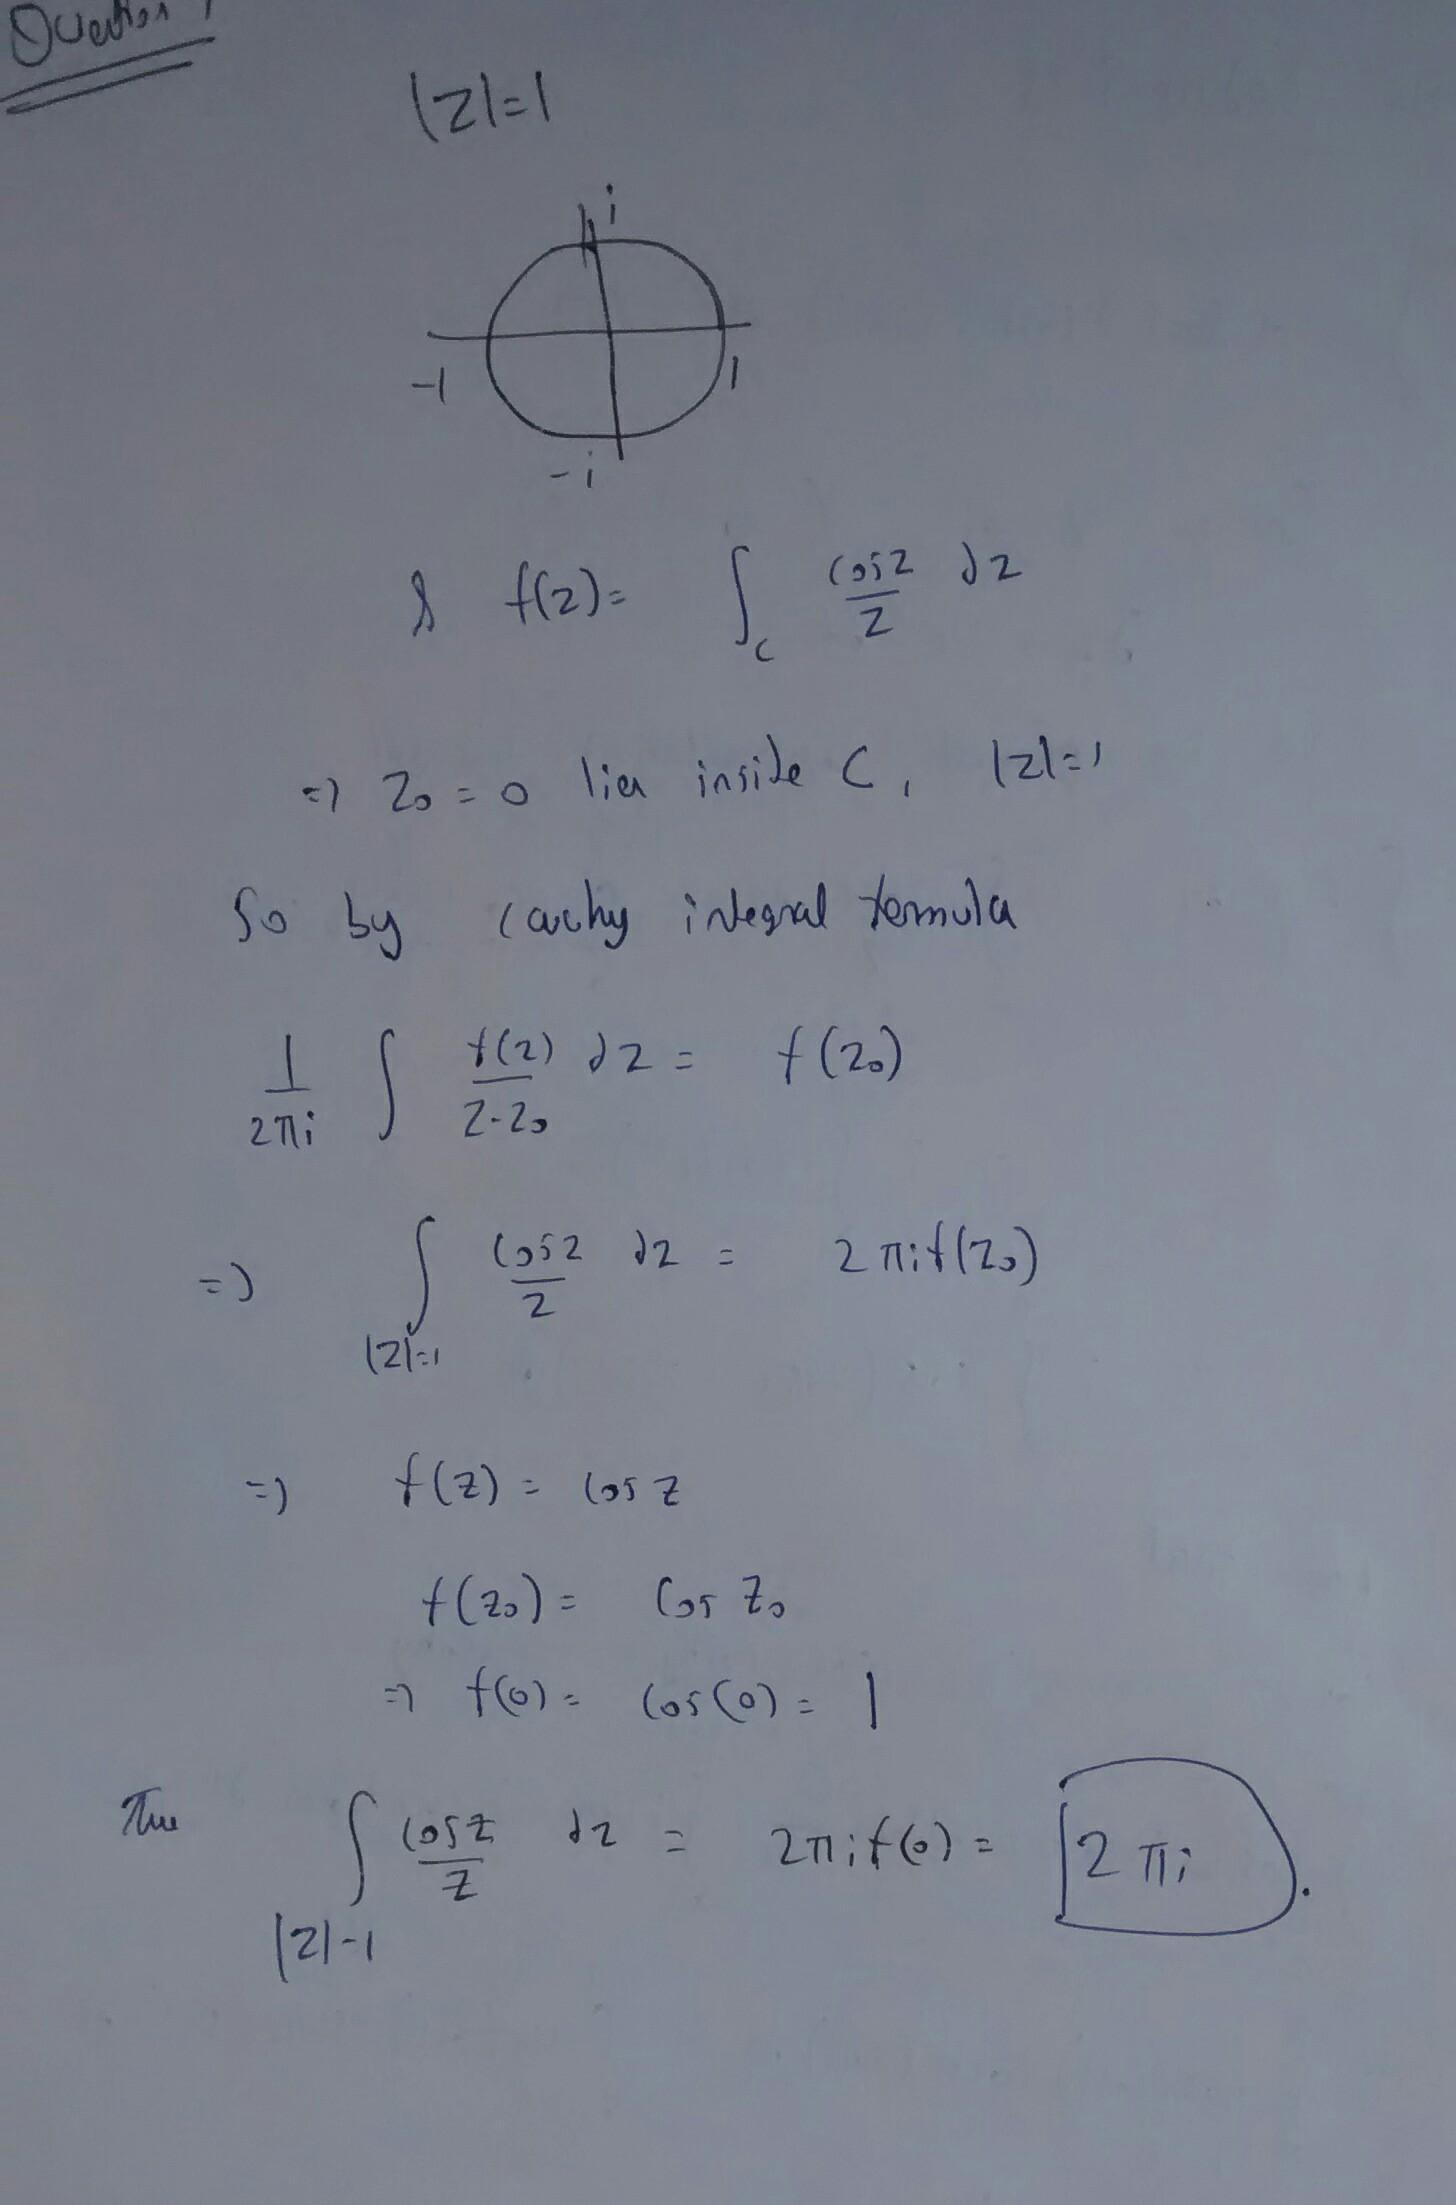 Question 1
|z|=1
i
-1 1
-i
& f(z)= ∫_C cosz/z dz
=) z₀ = 0 lies inside C, |z|=1
So by cauchy integral formula
1/2πi ∫ f(z)/z-z₀ dz = f(z₀)
=) ∫_|z|=1 cosz/z dz = 2πif(z₀)
=) f(z) = cosz
f(z₀) = Cos z₀
=) f(0) = cos(0) = 1
Thus ∫_|z|-1 cosz/z dz = 2πif(0) = 2πi.